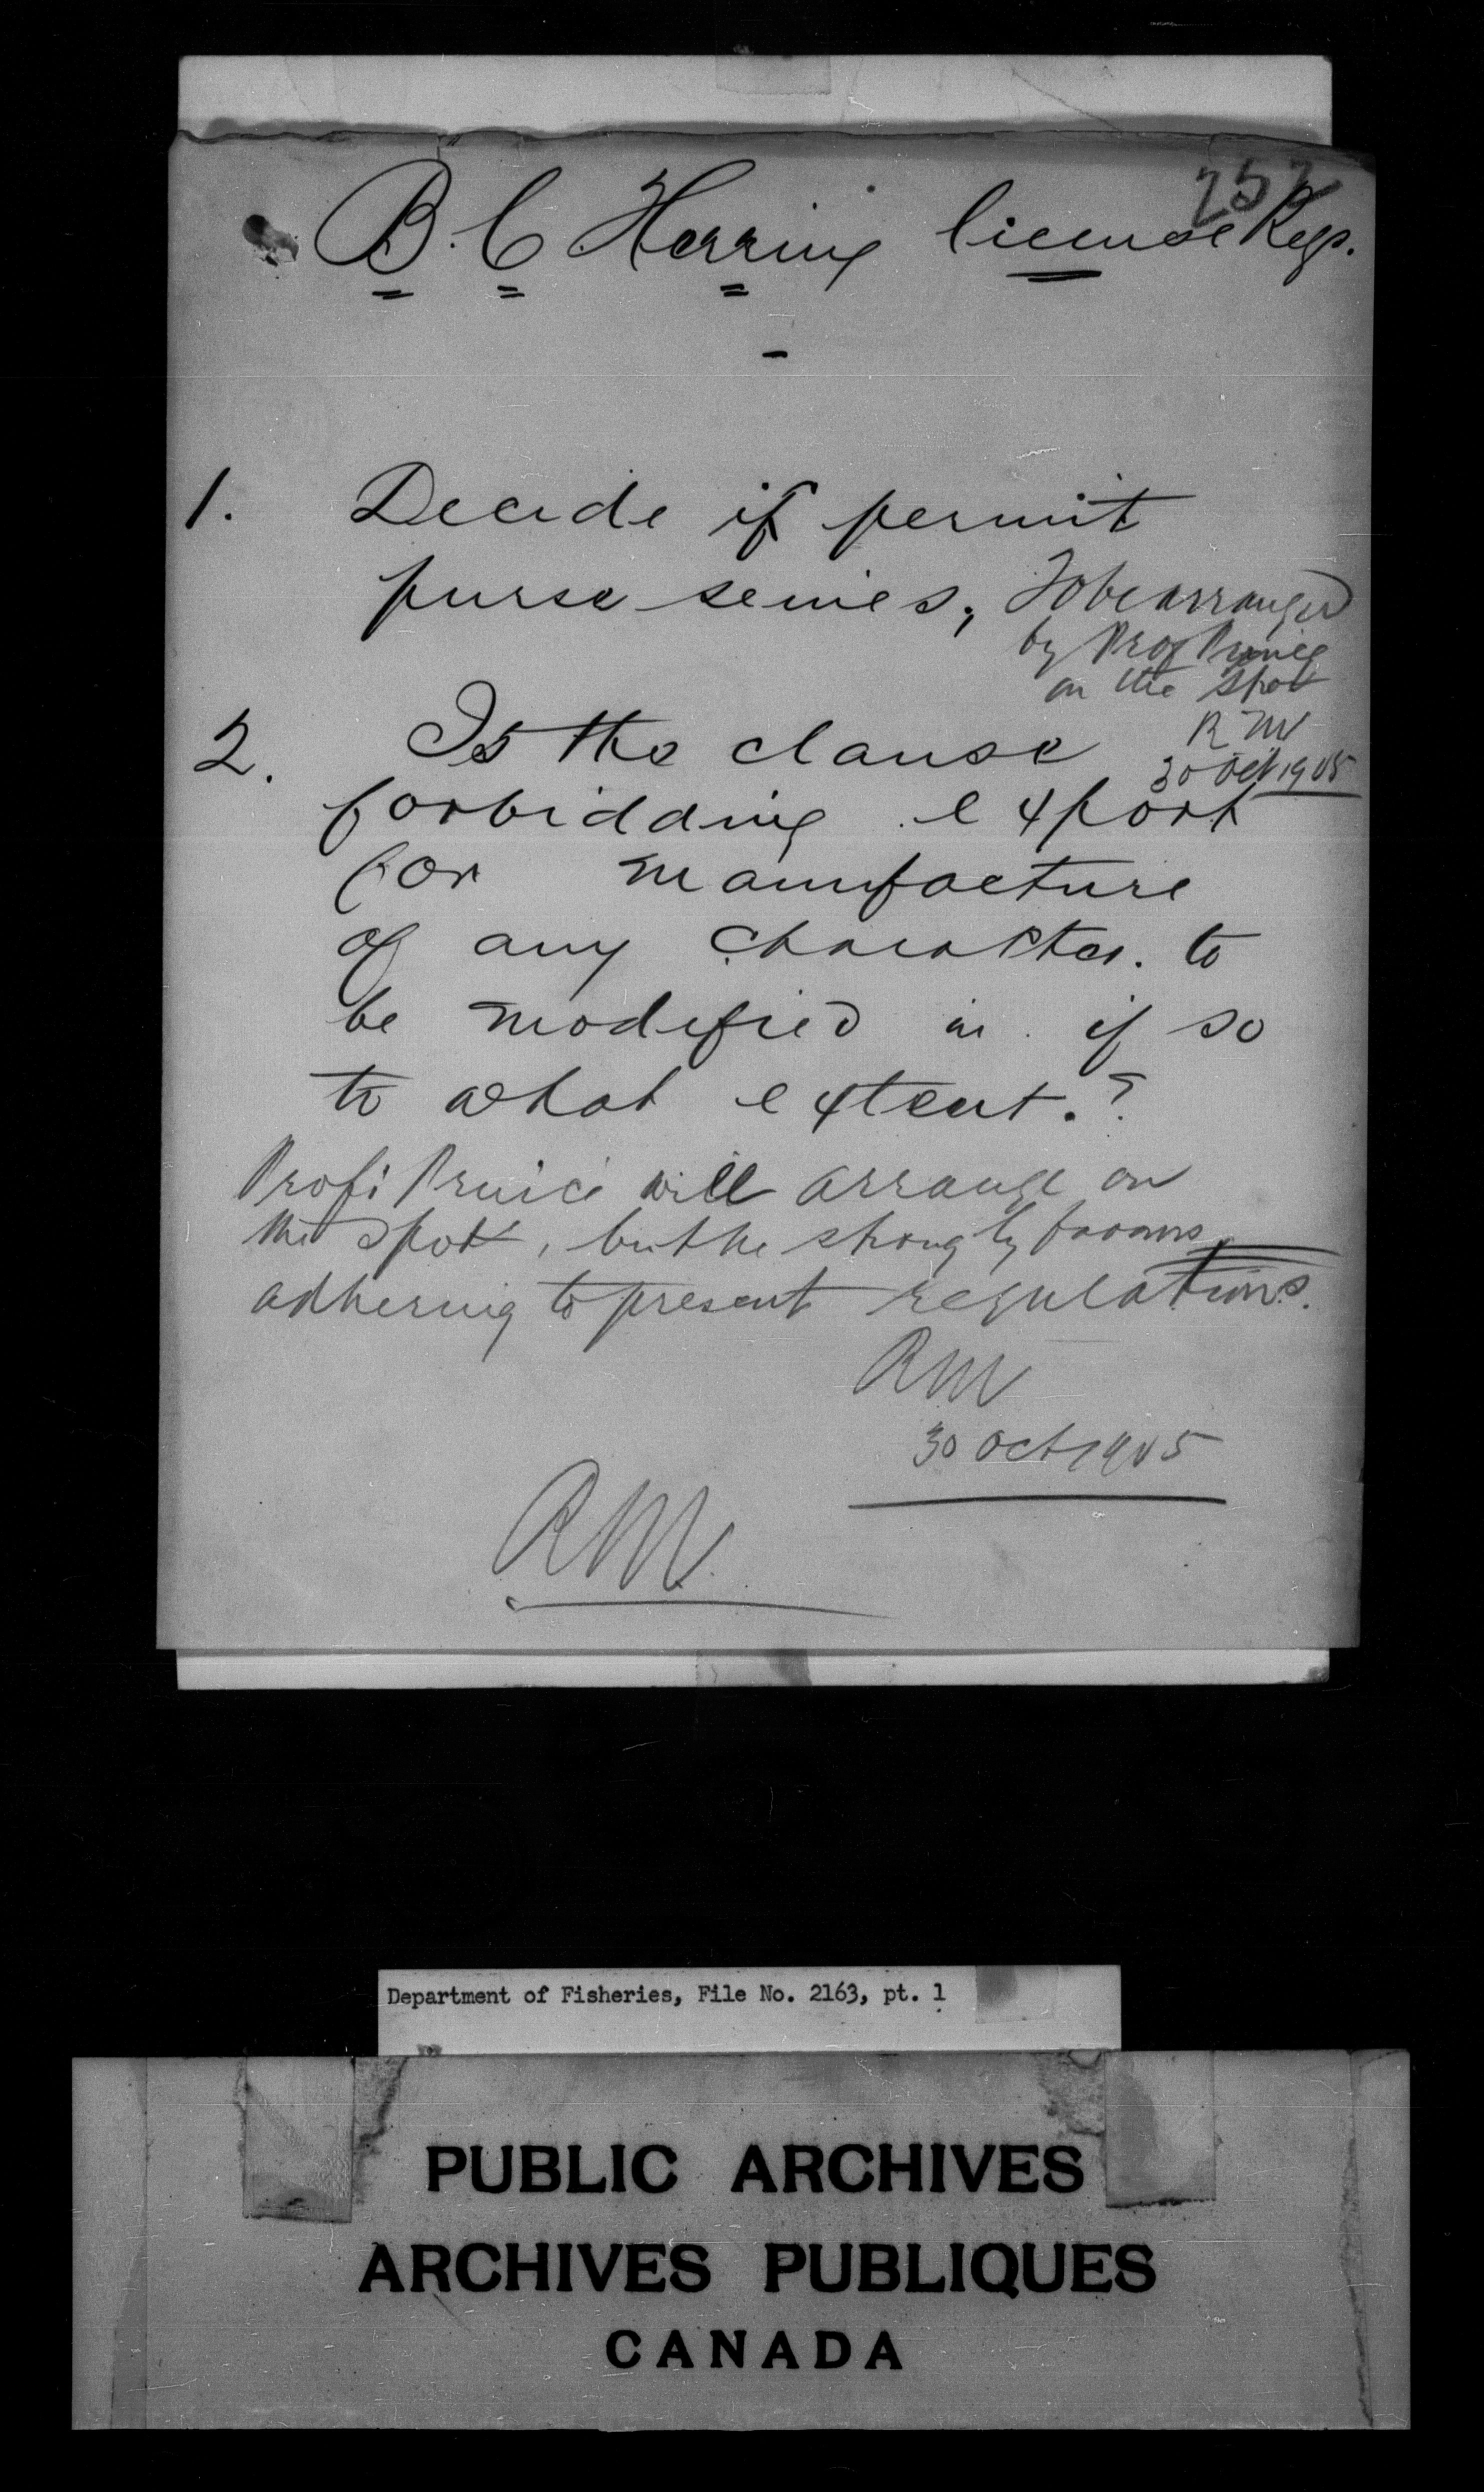 257
B.C Herring license Regs.
1. Decide if permit
purse seines,
To be arranged
by Prof Prince
on the spot
RM
30 Oct 1905
2. Is the clause
forbidding export
for manufacture
of any character. to
be modified in. if so
to what extent.?
Prof. Prince will arrange on
the spot, but he strongly favors
adhering to present regulations.
RM
30 Oct 1905
RM.
Department of Fisheries, File No. 2163, pt. 1
PUBLIC ARCHIVES
ARCHIVES PUBLIQUES
CANADA